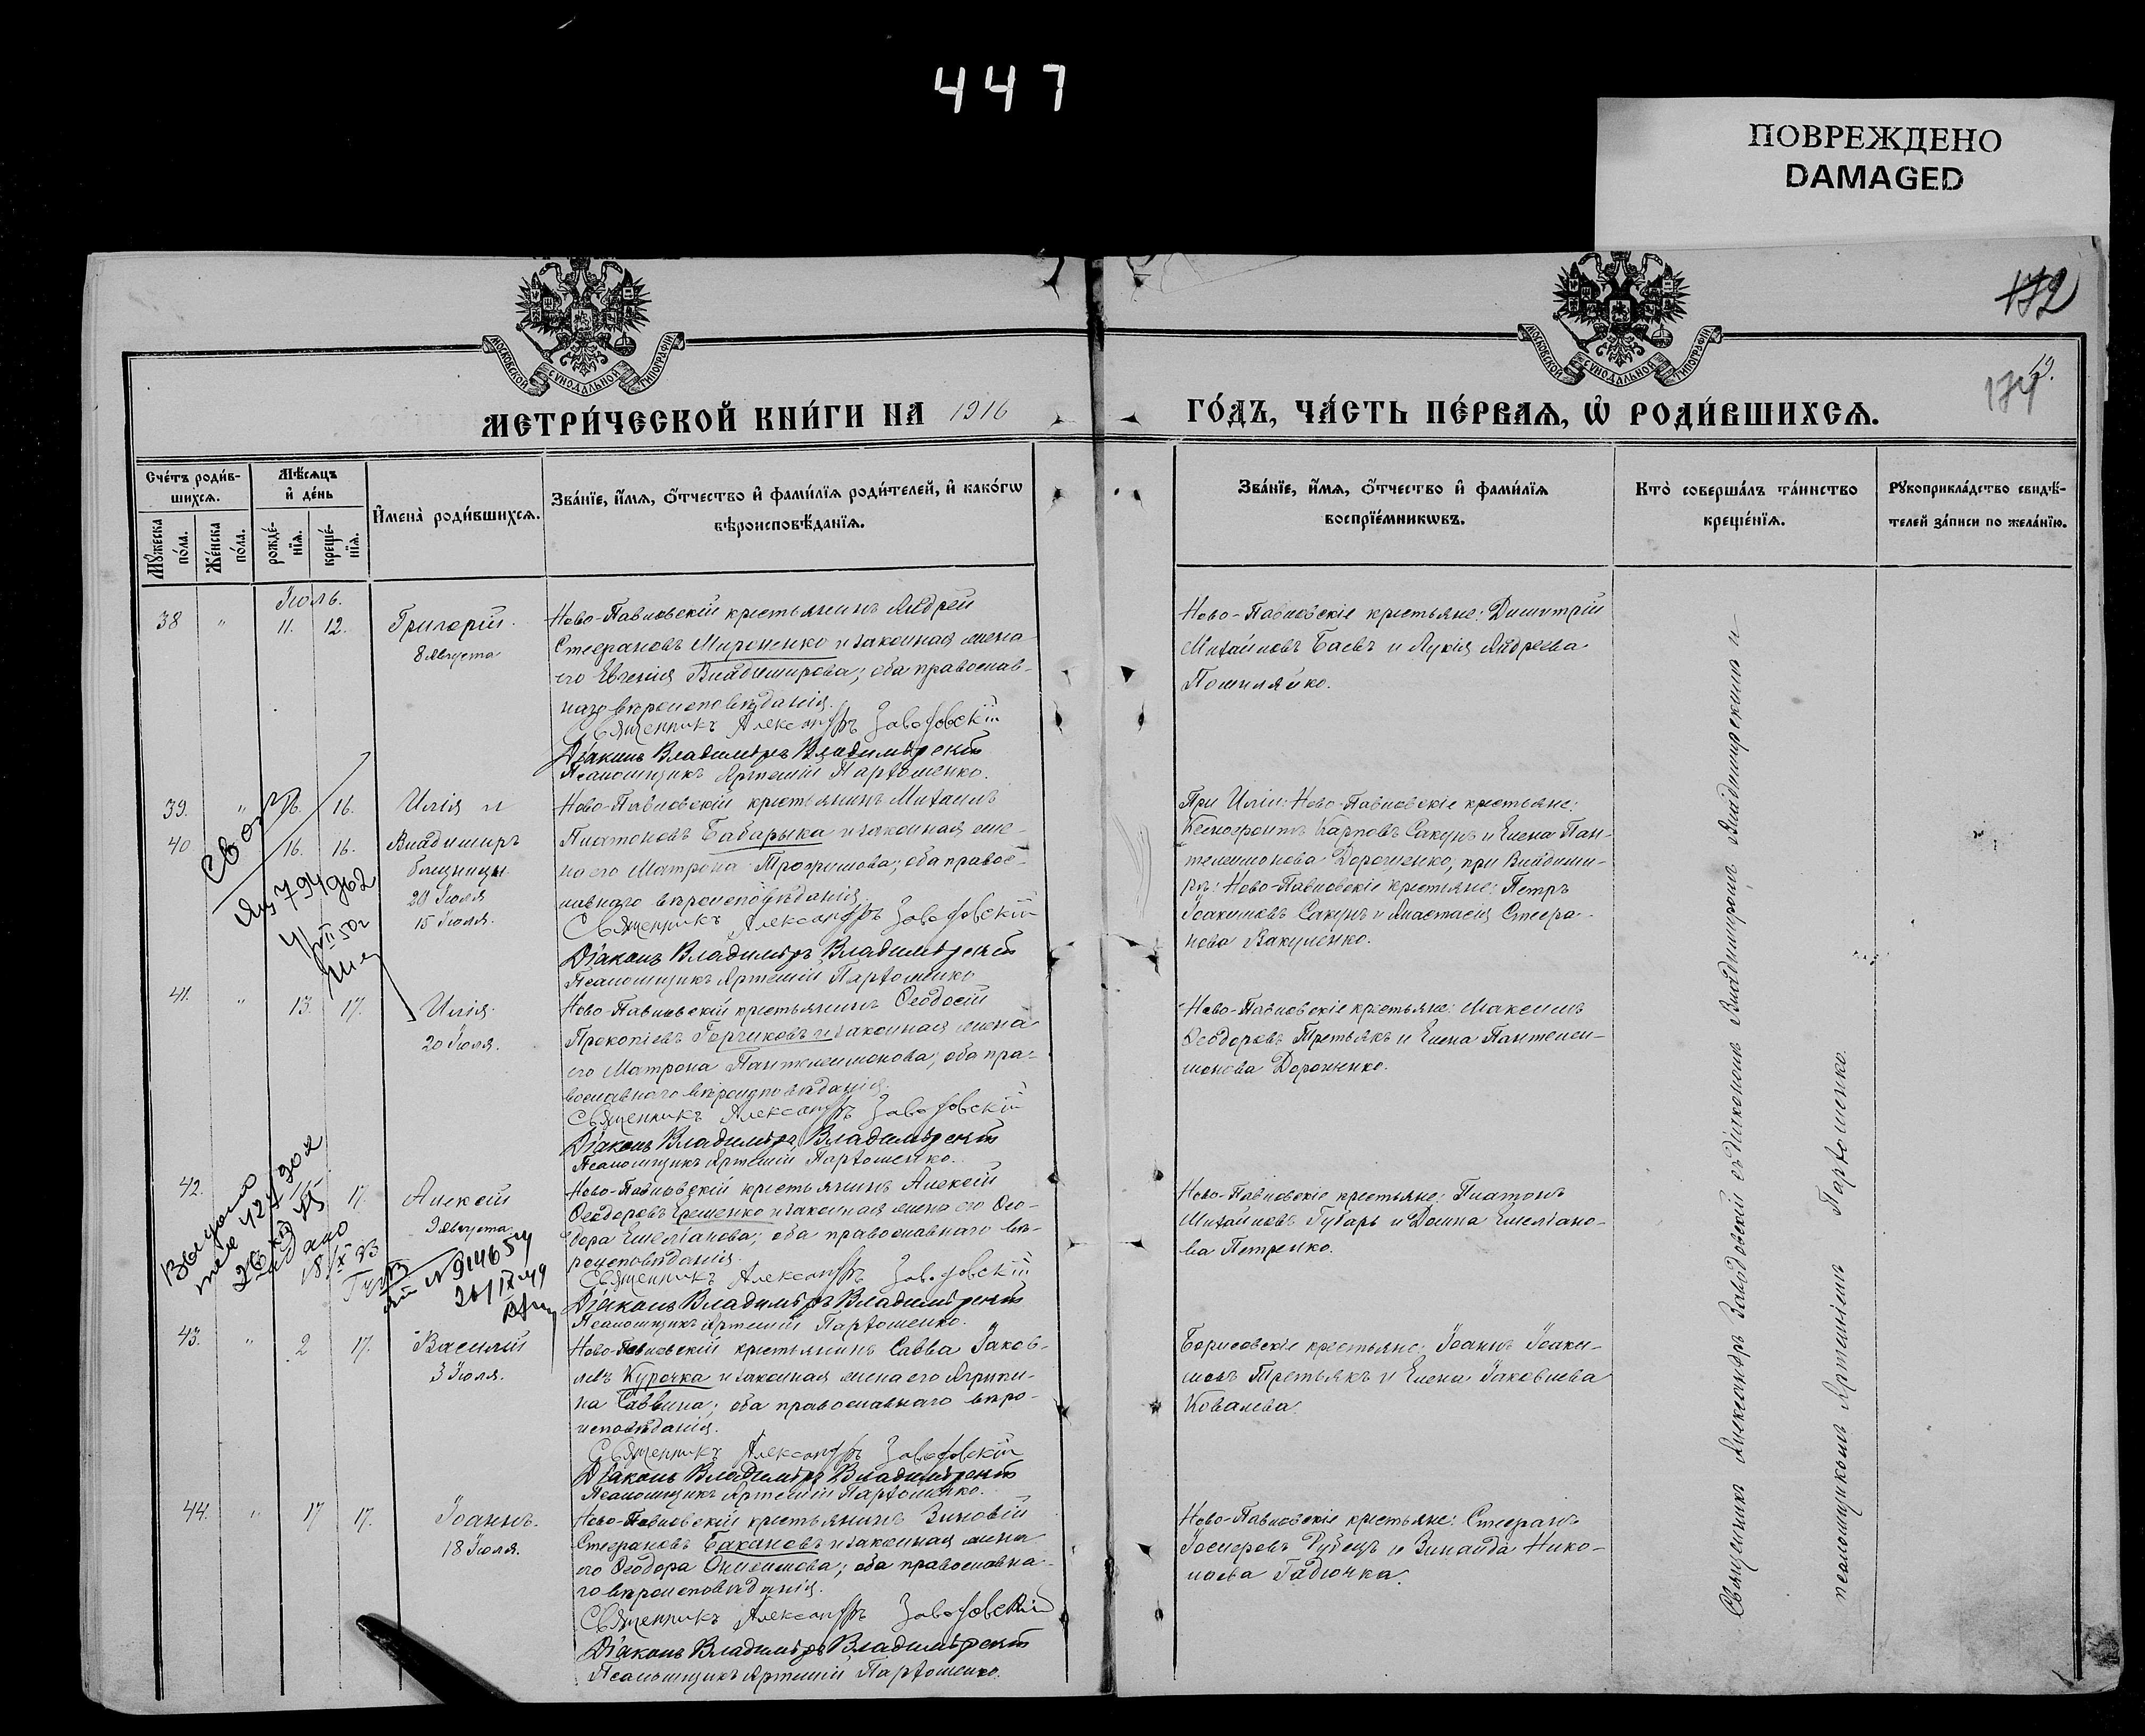 447
ПОВРЕЖДЕНО
DAMAGED
172
МОСКОВСКОЙ СУНОДАЛЬНОЙ ТИПОГРАФІИ
МОСКОВСКОЙ СУНОДАЛЬНОЙ ТИПОГРАФІИ
174
МЕТРИ́ЧЕСКОЙ КНИ́ГИ НА 1916
ГО́ДЪ, ЧА́СТЬ ПЕ́РВАѦ, Ѡ҆ РОДИ́ВШИХСѦ.
Сче́тъ роди́в-
шихсѧ.
Мꙋ́жеска по́ла.
Же́нска по́ла.
Мѣ́сѧцъ
и҆ де́нь
рожде́-
нїѧ.
креще́-
нїѧ.
И҆мена̀ роди́вшихсѧ.
Зва́нїе, и҆́мѧ, ѻ҆́тчество и҆ фами́лїѧ роди́телей, и҆ како́гѡ
вѣроисповѣ́данїѧ.
Зва́нїе, и҆́мѧ, ѻ҆́тчество и҆ фами́лїѧ
воспрїе́мникѡвъ.
Кто̀ соверша́лъ та́инство
креще́нїѧ.
Рꙋкоприкла́дство свидѣ́-
телей за́писи по жела́нїю.
Іюль.
38 " 11. 12. Григорій.
8 Августа
Ново-Павловскій крестьянинъ Андрей
Стефановъ Мироненко и законная жена
его Евгенія Владимирова; оба православ-
наго вѣроисповѣданія.
Священникъ Александръ Заводовскій
Діаконъ Владиміръ Владимірскій
Псаломщикъ Артемій Пархоменко.
Ново-Павловскіе крестьяне: Димитрій
Михайловъ Баевъ и Лукія Андреева
39. " 16. 16. Илія и
40 16. 16. Владимиръ
близнецы
20 Іюля
15 Іюля.
Ново-Павловскій крестьянинъ Михаилъ
Платоновъ Бабарыка и законная же-
на его Матрона Трофимова; оба право-
славнаго вѣроисповѣданія.
Священникъ Александръ Заводовскій
Діаконъ Владиміръ Владимірскій
Псаломщикъ Артемій Пархоменко
При Иліи: Ново-Павловскіе крестьяне:
Ксенофонтъ Карповъ Сакунъ и Елена Пан-
телеимонова Дорошенко; при Владими-
рѣ: Ново-Павловскіе крестьяне: Петръ
Іоакимовъ Сакунъ и Анастасія Стефа-
нова Вакуленко.
41. " 13. 17. Илія.
20 Іюля.
Ново-Павловскій крестьянинъ Ѳеодосій
Прокопіевъ Горчиковъ и законная жена
его Матрона Пантелеимонова; оба пра-
вославнаго вѣроисповѣданія.
Священникъ Александръ Заводовскій
Діаконъ Владиміръ Владимірскій
Псаломщикъ Артемій Пархоменко.
Ново-Павловскіе крестьяне: Максимъ
Ѳеодоровъ Третьякъ и Елена Пантелеи-
монова Дорошенко.
42. 17. Алексій
9 Августа
Ново-Павловскій крестьянинъ Алексій
Ѳеодоровъ Ерешенко и законная жена его Ѳео-
дора Емеліанова; оба православнаго вѣ-
роисповѣданія.
Священникъ Александръ Заводовскій
Діаконъ Владиміръ Владимірскій
Псаломщикъ Артемій Пархоменко.
Ново-Павловскіе крестьяне: Платонъ
Михайловъ Губарь и Домна Емеліано-
ва Петренко.
43. " 2 17. Василій
3 Іюля.
Ново-Павловскій крестьянинъ Савва Іаков-
левъ Курочка и законная жена его Агрипи-
на Саввина; оба православнаго вѣро-
исповѣданія.
Священникъ Александръ Заводовскій
Діаконъ Владиміръ Владимірскій
Псаломщикъ Артемій Пархоменко.
Борисовскіе крестьяне: Іоаннъ Іоаки-
мовъ Третьякъ и Елена Іаковлева
Ковалева.
44. " 17 17. Іоаннъ.
18 Іюля.
Ново-Павловскій крестьянинъ Зиновій
Стефановъ Бакановъ и законная жена
его Ѳеодора Онисимова; оба православна-
го вѣроисповѣданія.
Священникъ Александръ Заводовскій
Діаконъ Владиміръ Владимірскій
Псаломщикъ Артемій Пархоменко.
Ново-Павловскіе крестьяне: Стефанъ
Іосифовъ Рубецъ и Зинаида Нико-
лаева Гадючка.
Священникъ Александръ Заводовскій съ діакономъ Владимиромъ Владимирскимъ и
псаломщикомъ Артеміемъ Пархоменко.